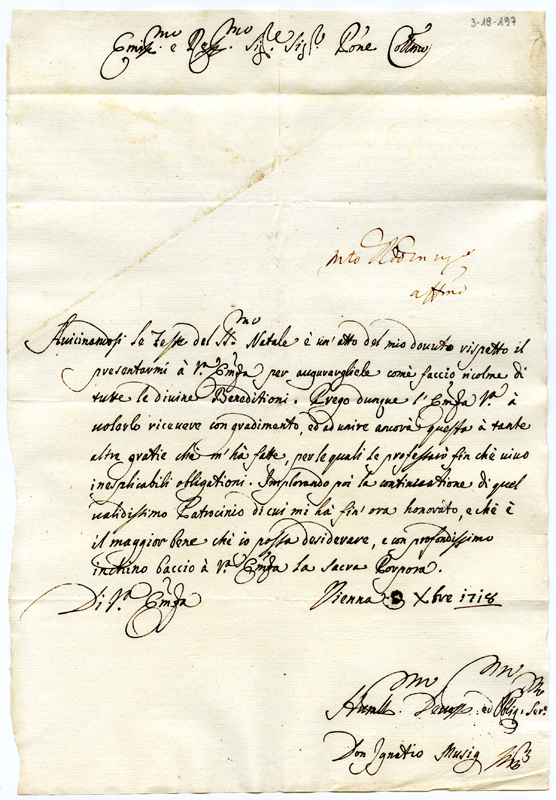 3-18-197
Emin.mo e Re.mo Sig.re Sig.r P'rone Coll.mo
aff.mo
Auicinandosi le Feste del SS.mo Natale è un'atto del mio douuto rispetto il
presentarmi à V.ra Em'za per augurargliele come faccio ricolme di
tutte le diuine Beneditioni. Prego dunque l'Em'za V.ra à
uolerlo riceuere con gradimento, ed adunire ancora questa à tante
altre gratie che m'hà fatte, per le quali le professerò fin che uiuo
inesplicabili obligationi. Implorando poi la continuatione di quel
ualidissimo Patrocinio di cui mi hà fin'ora honorato, e che è
il maggior bene che io possa desiderare, e con profondissimo
inchino baccio à V.ra Em'za la Sacra Porpora.
Di V.ra Em'za
Vienna Xbre 1718
Humill.mo Deuo.mo ed Oblig.mo Ser.
Don Ignatio Musig